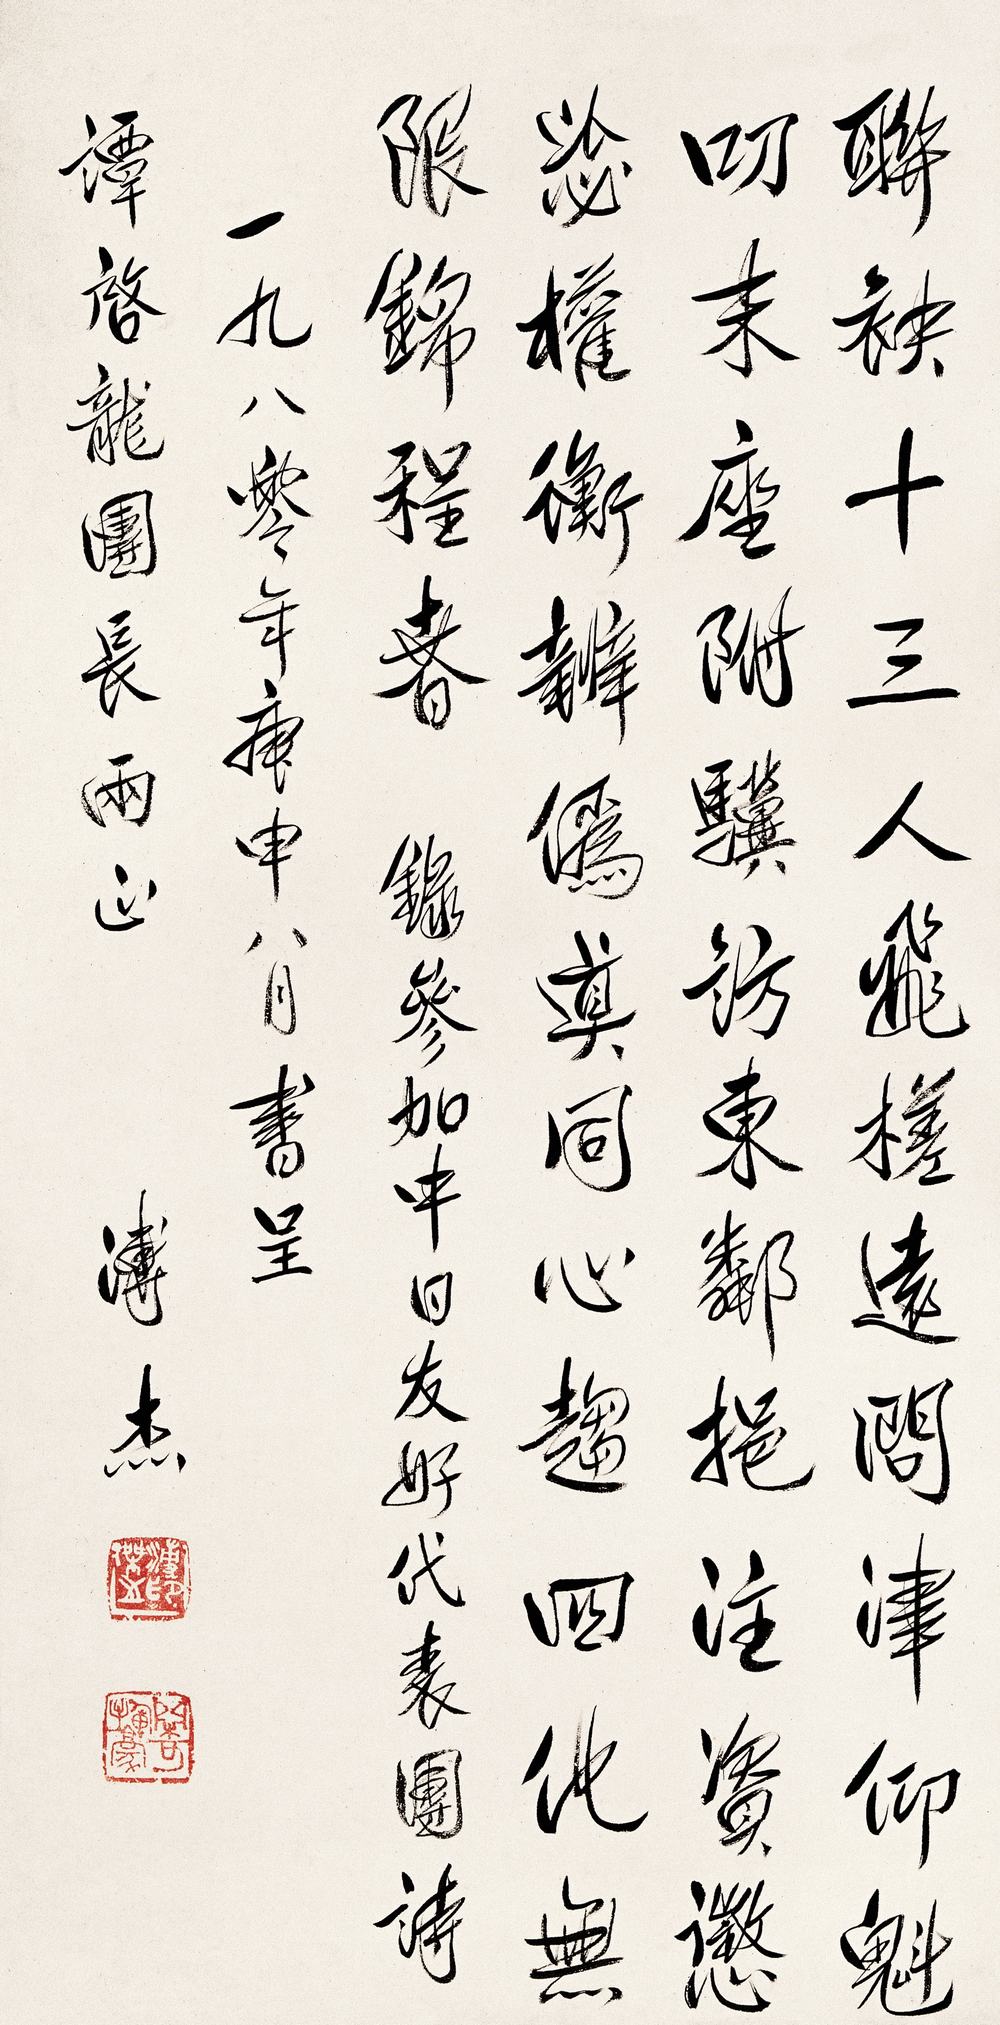 聯袂十三人飛槎遠問津仰魁
叨末座附驥訪東鄰挹注資懲
毖權衡辨偽真同心趨四化無
限錦程春 錄參加中日友好代表團詩
一九八零年庚申八月書呈
譚啓龍團長兩正 溥杰